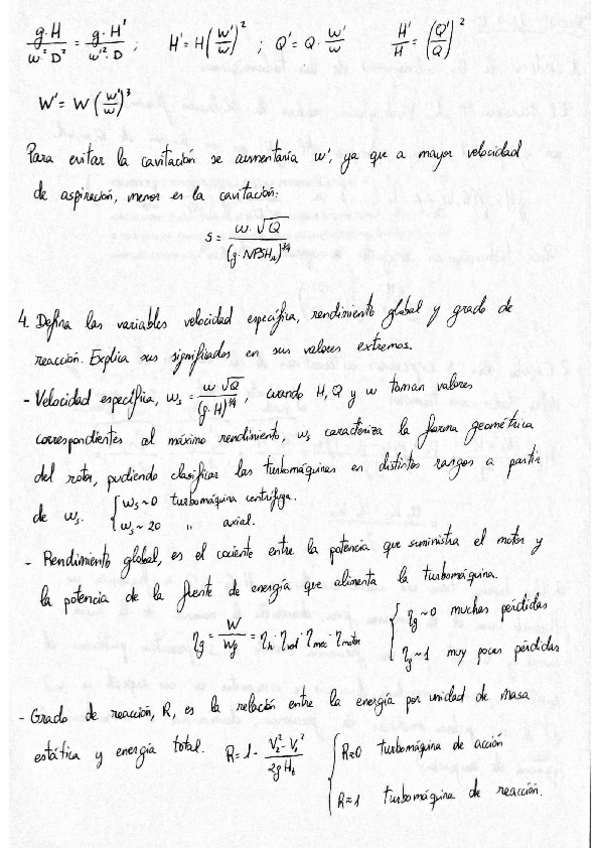 g·H / w²·D² = g·H' / w'²·D ; H' = H(w'/w)² ; Q' = Q·w'/w H'/H = (Q'/Q)²
W' = W(w'/w)³
Para evitar la cavitación se aumentaría w', ya que a mayor velocidad
de aspiración, menor es la cavitación:
s = w·√Q / (g·NPSHₐ)^3/4
4. Defina las variables velocidad específica, rendimiento global y grado de
reacción. Explica sus significados en sus valores extremos.
- Velocidad específica, ws = w √Q / (g·H)^3/4, cuando H, Q y w toman valores
correspondientes al máximo rendimiento, ws caracteriza la forma geométrica
del rotor, pudiendo clasificar las turbomáquinas en distintos rangos a partir
de ws. { ws ~ 0 turbomáquina centrífuga.
ws ~ 20 " axial.
- Rendimiento global, es el cociente entre la potencia que suministra el motor y
la potencia de la fuente de energía que alimenta la turbomáquina.
ηg = W / Wg = ηh·ηvol·ηmec·ηmotor { ηg ~ 0 muchas pérdidas
ηg ~ 1 muy pocas pérdidas
- Grado de reacción, R, es la relación entre la energía por unidad de masa
estática y energía total. R = 1 - V₂² - V₁² / 2g Ht { R≈0 Turbomáquina de acción
R≈1 Turbomáquina de reacción.